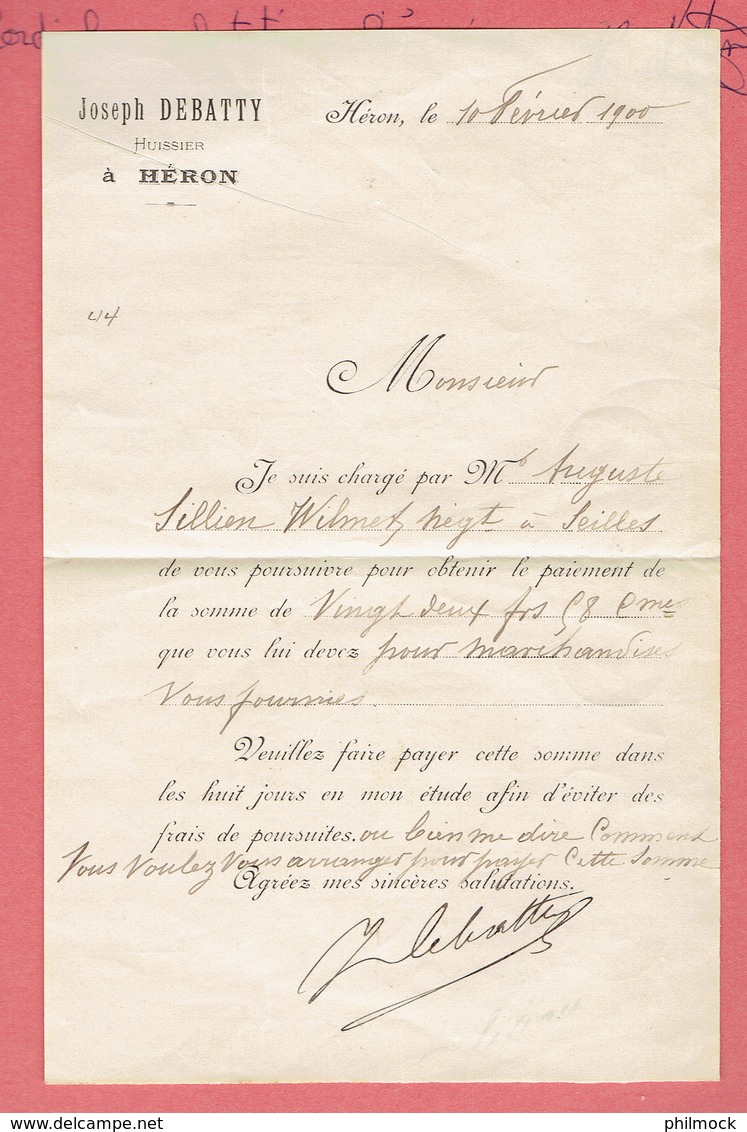 Joseph DEBATTY
HUISSIER
à HÉRON
Héron, le 10 Février 1900
44
Monsieur
Je suis chargé par Mr Auguste
Sillien Wilmet, négt à Seilles
de vous poursuivre pour obtenir le paiement de
la somme de Vingt deux frs 58 Cmes
que vous lui devez pour marchandises
Vous fournies.
Veuillez faire payer cette somme dans
les huit jours en mon étude afin d'éviter des
frais de poursuites. ou bien me dire Comment
Vous Voulez Vous arranger pour payer Cette Somme
Agréez mes sincères salutations.
J Debatty
delcampe.net
philmock